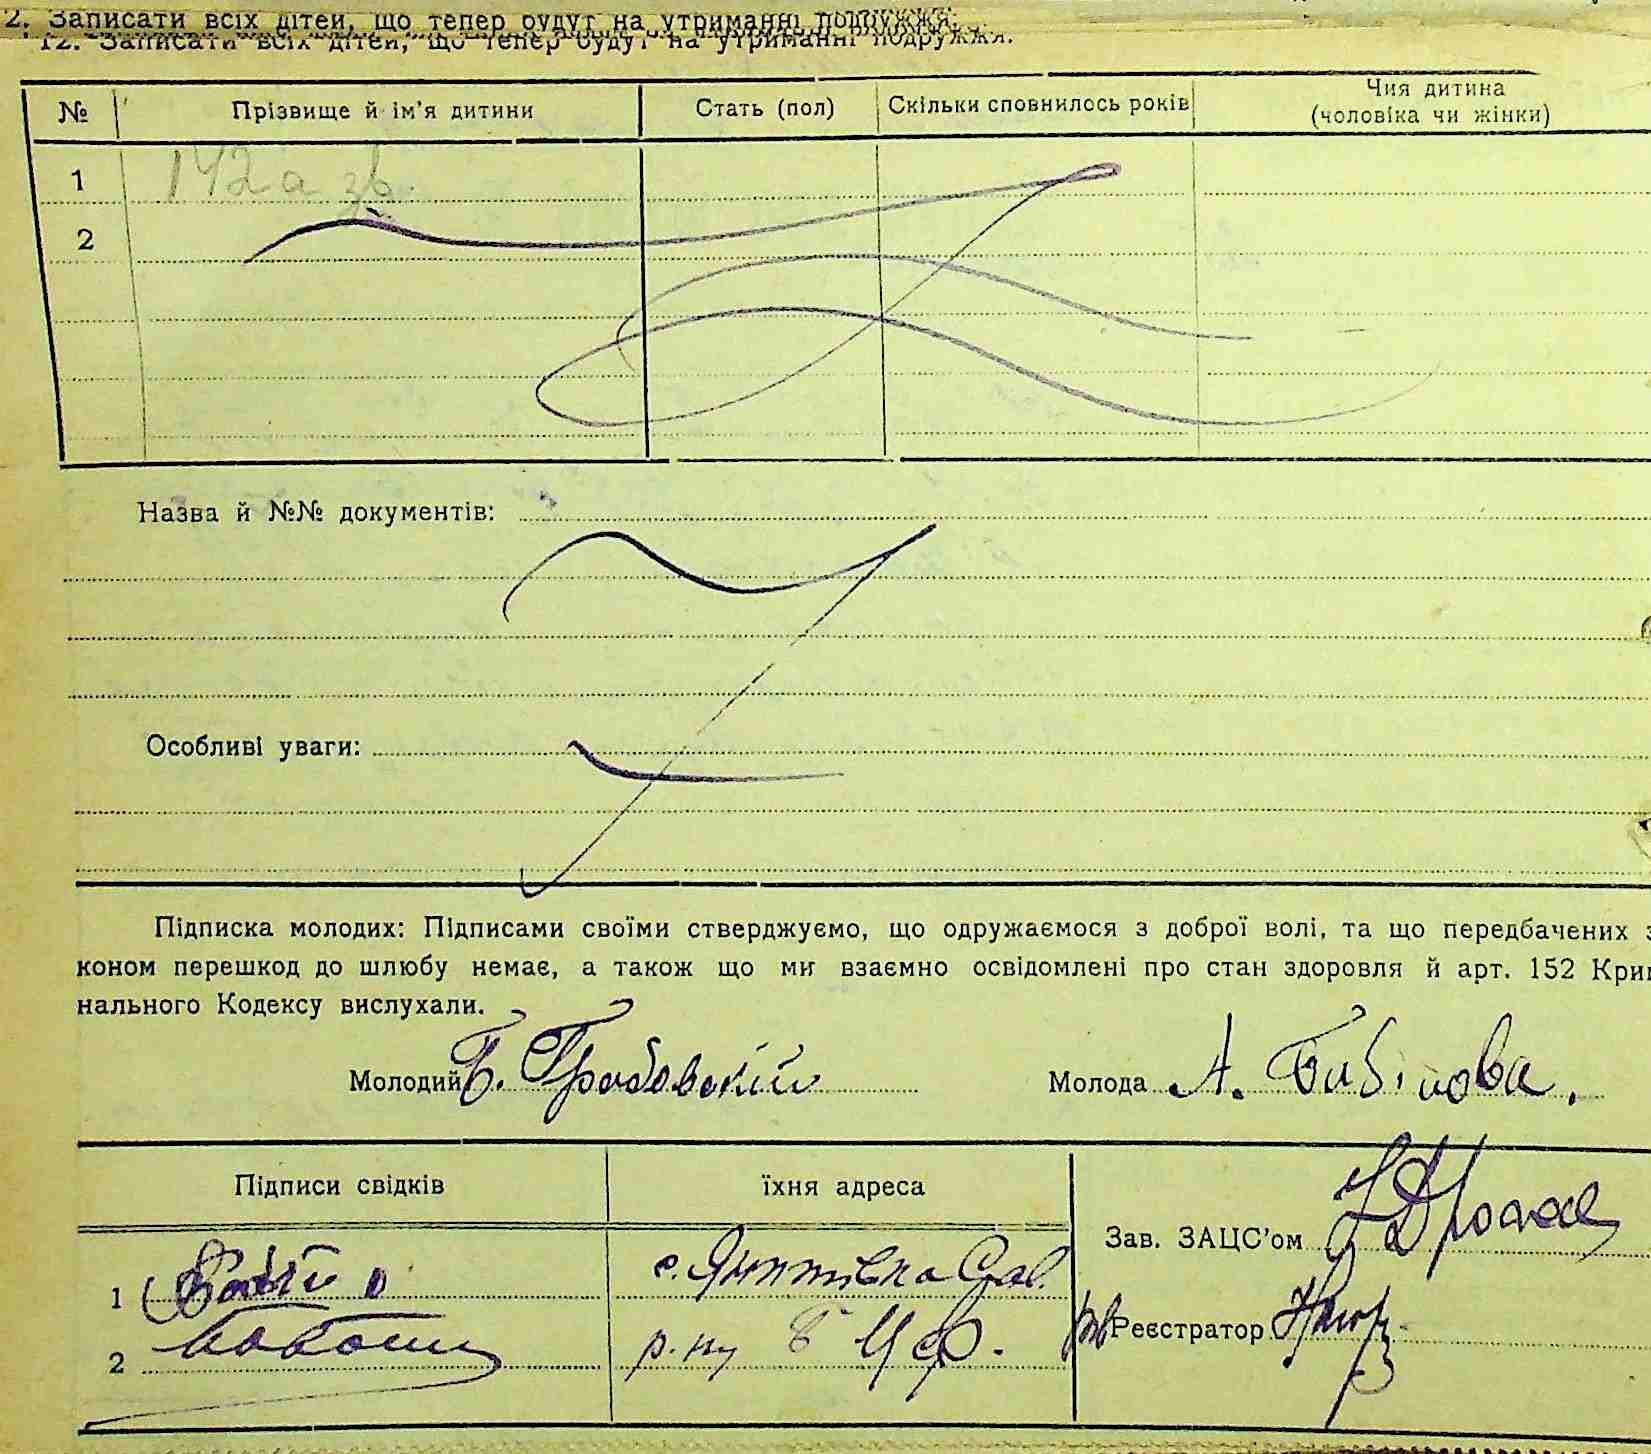 2. Записати всіх дітей, що тепер будут на утриманні подружжя.
12. Записати всіх дітей, що тепер будут на утриманні подружжя.
№ Прізвище й ім'я дитини Стать (пол) Скільки сповнилось років Чия дитина (чоловіка чи жінки)
1 142 а зв.
2
Назва й №№ документів:
Особливі уваги:
Підписка молодих: Підписами своїми стверджуємо, що одружаємося з доброї волі, та що передбачених з
коном перешкод до шлюбу немає, а також що ми взаємно освідомлені про стан здоровля й арт. 152 Крим
нального Кодексу вислухали.
Молодий Б. Грабовский Молода А. Бибікова.
Підписи свідків їхня адреса
Зав. ЗАЦС'ом
1 с.
Реєстратор
2 р.ну